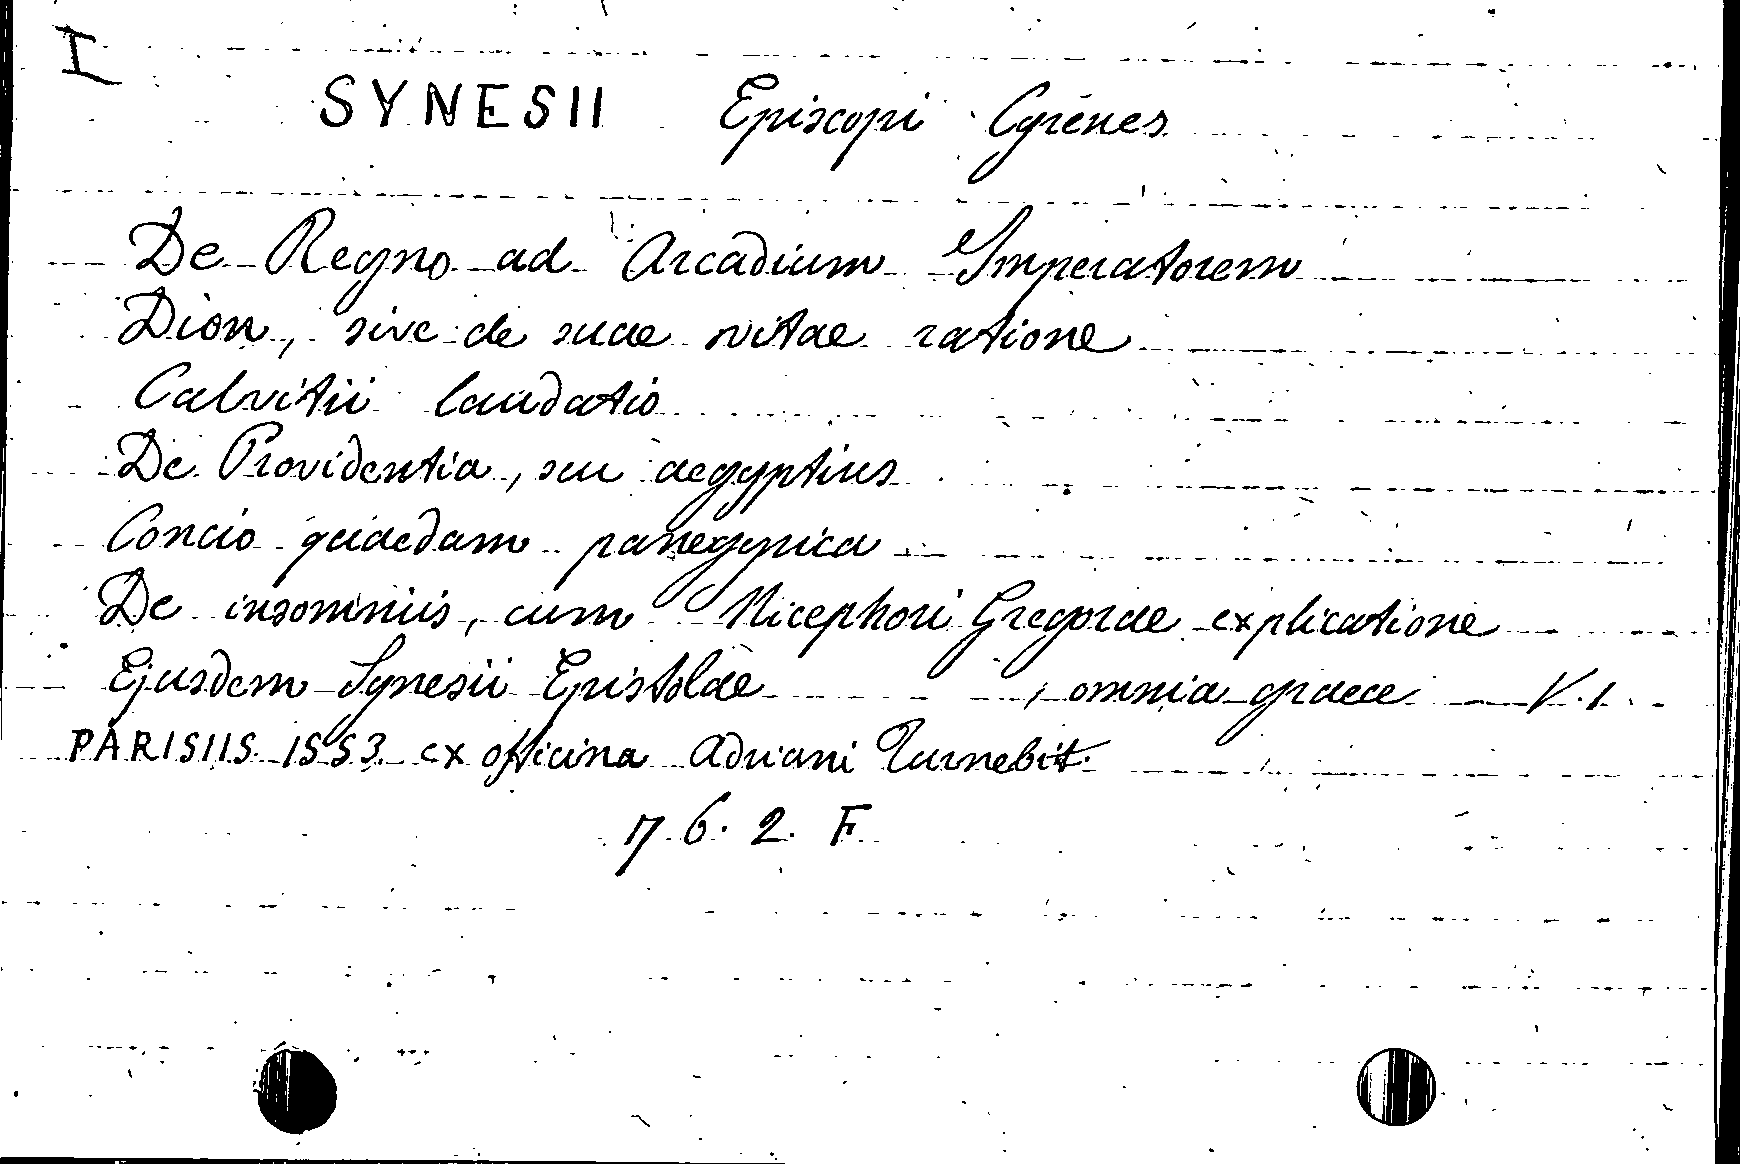 I
SYNESII Episcopi Cyrénes
De Regno ad Arcadium Imperatorem
Dion, sive de suae vitae ratione
Calvitii laudatio
De Providentia, seu aegyptius
Concio quaedam panegyrica
De insomniis, cum Nicephori Gregorae explicatione
Ejusdem Synesii Epistolae , omnia graece V.1.
PARISIIS 1553 ex officina Adriani Turnebii.
76.2. F